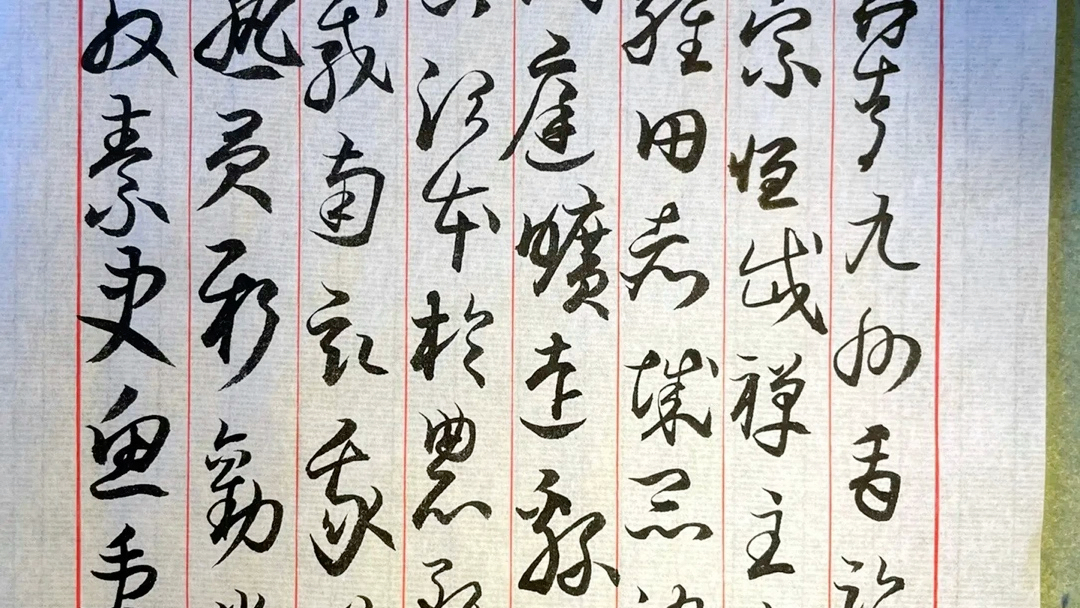 青九州禹跡
宗恒岱禪主
雞田赤城昆池
洞庭曠遠綿
治本於農務
載南畝我
熟貢新勸
敦素史魚秉